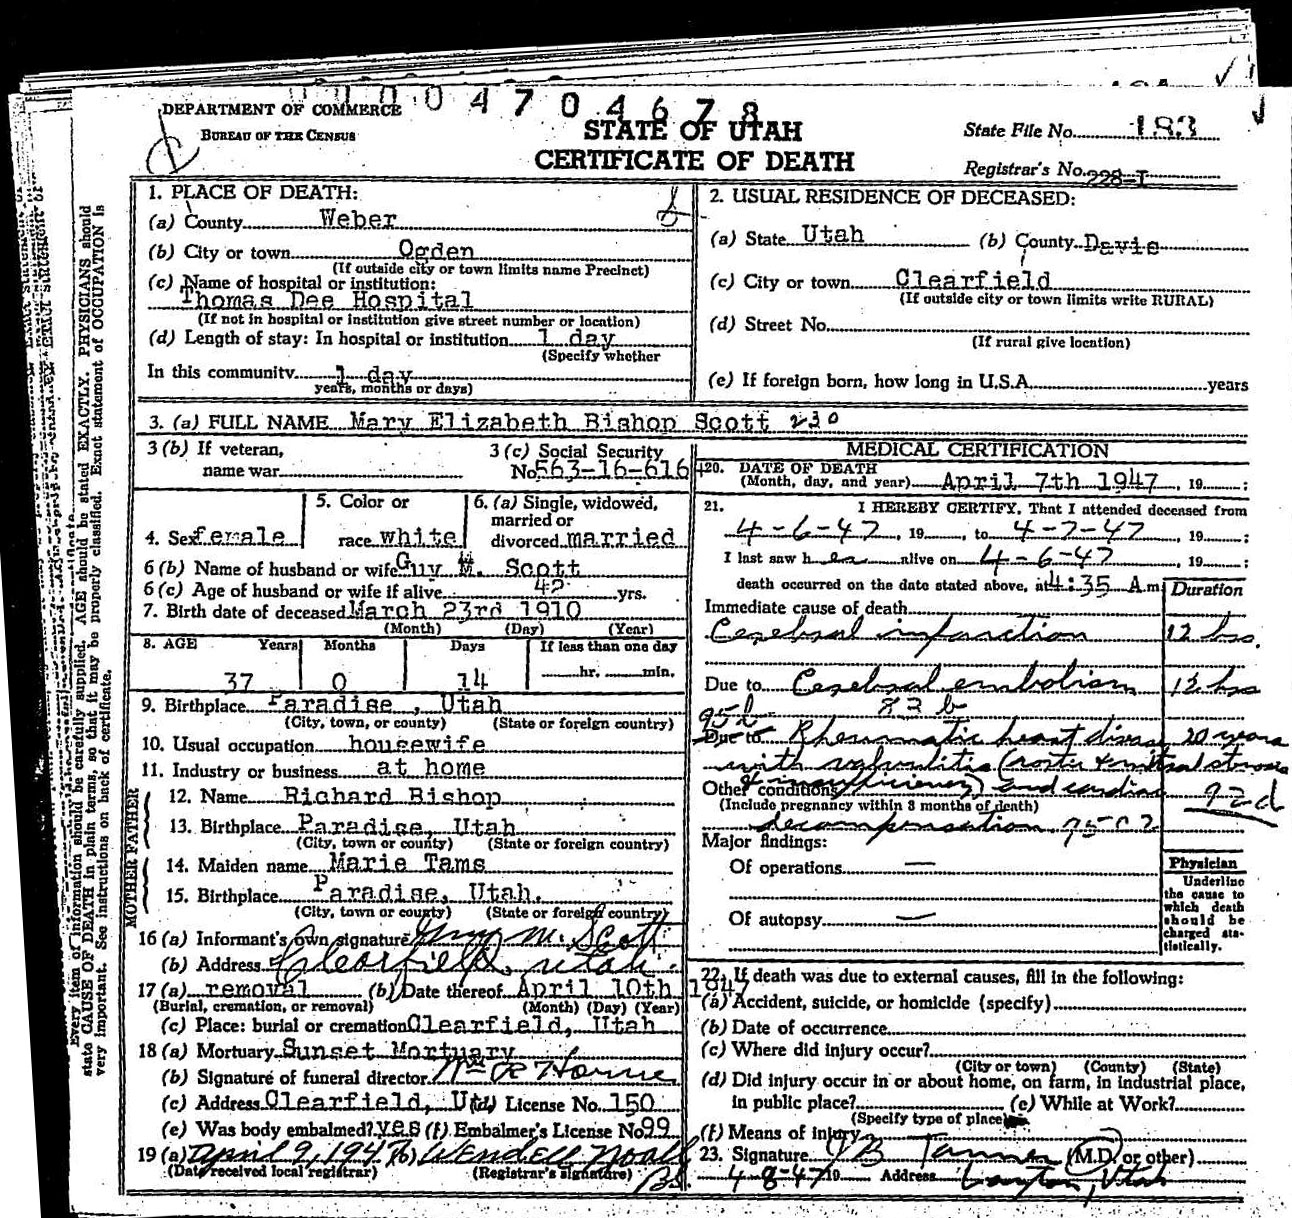 0004704678
DEPARTMENT OF COMMERCE
BUREAU OF THE CENSUS
STATE OF UTAH
CERTIFICATE OF DEATH
State File No. 183
Registrar's No. 228-I
1. PLACE OF DEATH:
(a) County Weber
(b) City or town Ogden
(If outside city or town limits name Precinct)
(c) Name of hospital or institution:
Thomas Dee Hospital
(If not in hospital or institution give street number or location)
(d) Length of stay: In hospital or institution 1 day
(Specify whether
In this community 1 day
years, months or days)
2. USUAL RESIDENCE OF DECEASED:
(a) State Utah (b) County Davis
(c) City or town Clearfield
(If outside city or town limits write RURAL)
(d) Street No.
(If rural give location)
(e) If foreign born, how long in U.S.A. years
3. (a) FULL NAME Mary Elizabeth Bishop Scott 230
3 (b) If veteran, name war
3 (c) Social Security No. 563-16-6164
4. Sex female
5. Color or race white
6. (a) Single, widowed, married or divorced married
6 (b) Name of husband or wife Guy M. Scott
6 (c) Age of husband or wife if alive 42 yrs.
7. Birth date of deceased March 23rd 1910
(Month) (Day) (Year)
8. AGE Years Months Days If less than one day
37 0 14 hr. min.
9. Birthplace Paradise, Utah
(City, town, or county) (State or foreign country)
10. Usual occupation housewife
11. Industry or business at home
FATHER
12. Name Richard Bishop
13. Birthplace Paradise, Utah
(City, town or county) (State or foreign country)
MOTHER
14. Maiden name Marie Tams
15. Birthplace Paradise, Utah.
(City, town or county) (State or foreign country)
16 (a) Informant's own signature Guy M. Scott
(b) Address Clearfield, Utah.
17 (a) removal (b) Date thereof April 10th 1947
(Burial, cremation, or removal) (Month) (Day) (Year)
(c) Place: burial or cremation Clearfield, Utah
18 (a) Mortuary Sunset Mortuary
(b) Signature of funeral director
(c) Address Clearfield, Ut (d) License No. 150
(e) Was body embalmed? yes (f) Embalmer's License No. 99
19 (a) April 9, 1947 (b) Wendell Noall
(Date received local registrar) (Registrar's signature)
BS.
MEDICAL CERTIFICATION
20. DATE OF DEATH
(Month, day, and year) April 7th 1947, 19 ;
21. I HEREBY CERTIFY, That I attended deceased from
4-6-47, 19 , to 4-7-47, 19 ;
I last saw her alive on 4-6-47, 19 ;
death occurred on the date stated above, at 4:35 A.m. Duration
Immediate cause of death
Cerebral infarction 12 hrs.
Due to Cerebral embolism 12 hrs
83 b
95b
Due to Rheumatic heart disease 20 years
with valvulitis (aortic & mitral stenosis
& insufficiency) and cardiac 92d
Other conditions
(Include pregnancy within 3 months of death)
decompensation
Major findings:
Of operations —
Of autopsy —
Physician
Underline the cause to which death should be charged statistically.
22. If death was due to external causes, fill in the following:
(a) Accident, suicide, or homicide (specify)
(b) Date of occurrence
(c) Where did injury occur?
(City or town) (County) (State)
(d) Did injury occur in or about home, on farm, in industrial place,
in public place? (e) While at Work?
(Specify type of place)
(f) Means of injury
23. Signature JB Tanner (M.D. or other)
4-8-47 19 Address Layton, Utah
Every item of information should be carefully supplied. AGE should be stated EXACTLY. PHYSICIANS should
state CAUSE OF DEATH in plain terms, so that it may be properly classified. Exact statement of OCCUPATION is
very important. See instructions on back of certificate.